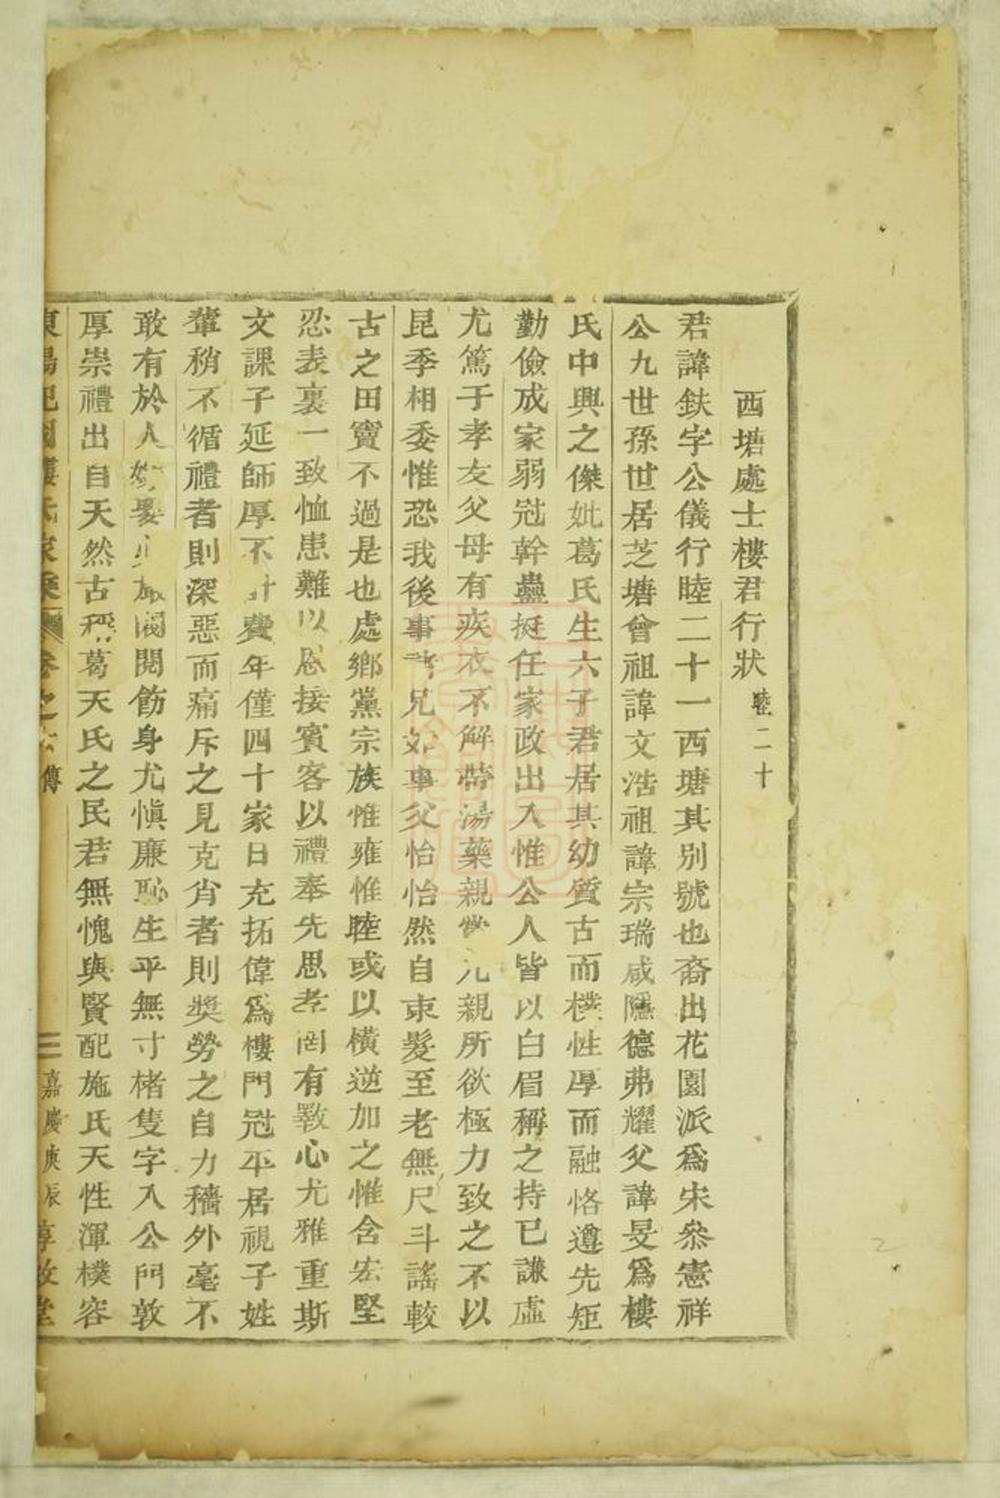 西塘處士樓君行狀 睦二十
君諱鈇字公儀行睦二十一西塘其别號也裔出花園派爲宋叅憲祥
公九世孫世居芝塘曾祖諱文浩祖諱宗瑞咸隱德弗耀父諱旻爲樓
氏中興之傑妣葛氏生六子君居其幼質古而樸性厚而融恪遵先矩
勤儉成家弱冠幹蠱挺任家政出入惟公人皆以白眉稱之持己謙虛
尤篤于孝友父母有疾衣不解帶湯藥親嘗凡親所欲極力致之不以
昆季相委惟恐我後事諸兄如事父怡怡然自束髮至老無尺斗謠較
古之田竇不過是也處鄉黨宗族惟雍惟睦或以橫逆加之惟含宏堅
忍表裏一致恤患難以恩接賓客以禮奉先思孝罔有斁心尤雅重斯
文課子延師厚不計費年僅四十家日充拓偉爲樓門冠平居視子姓
輩稍不循禮者則深惡而痛斥之見克肖者則奬勞之自力穡外毫不
敢有於人 閥閱飭身尤愼廉恥生平無寸楮隻字入公門敦
厚崇禮出自天然古稱葛天氏之民君無愧與賢配施氏天性渾樸容
東陽 樓氏家乘 卷之 傳 三 嘉慶庚辰 惇敘堂